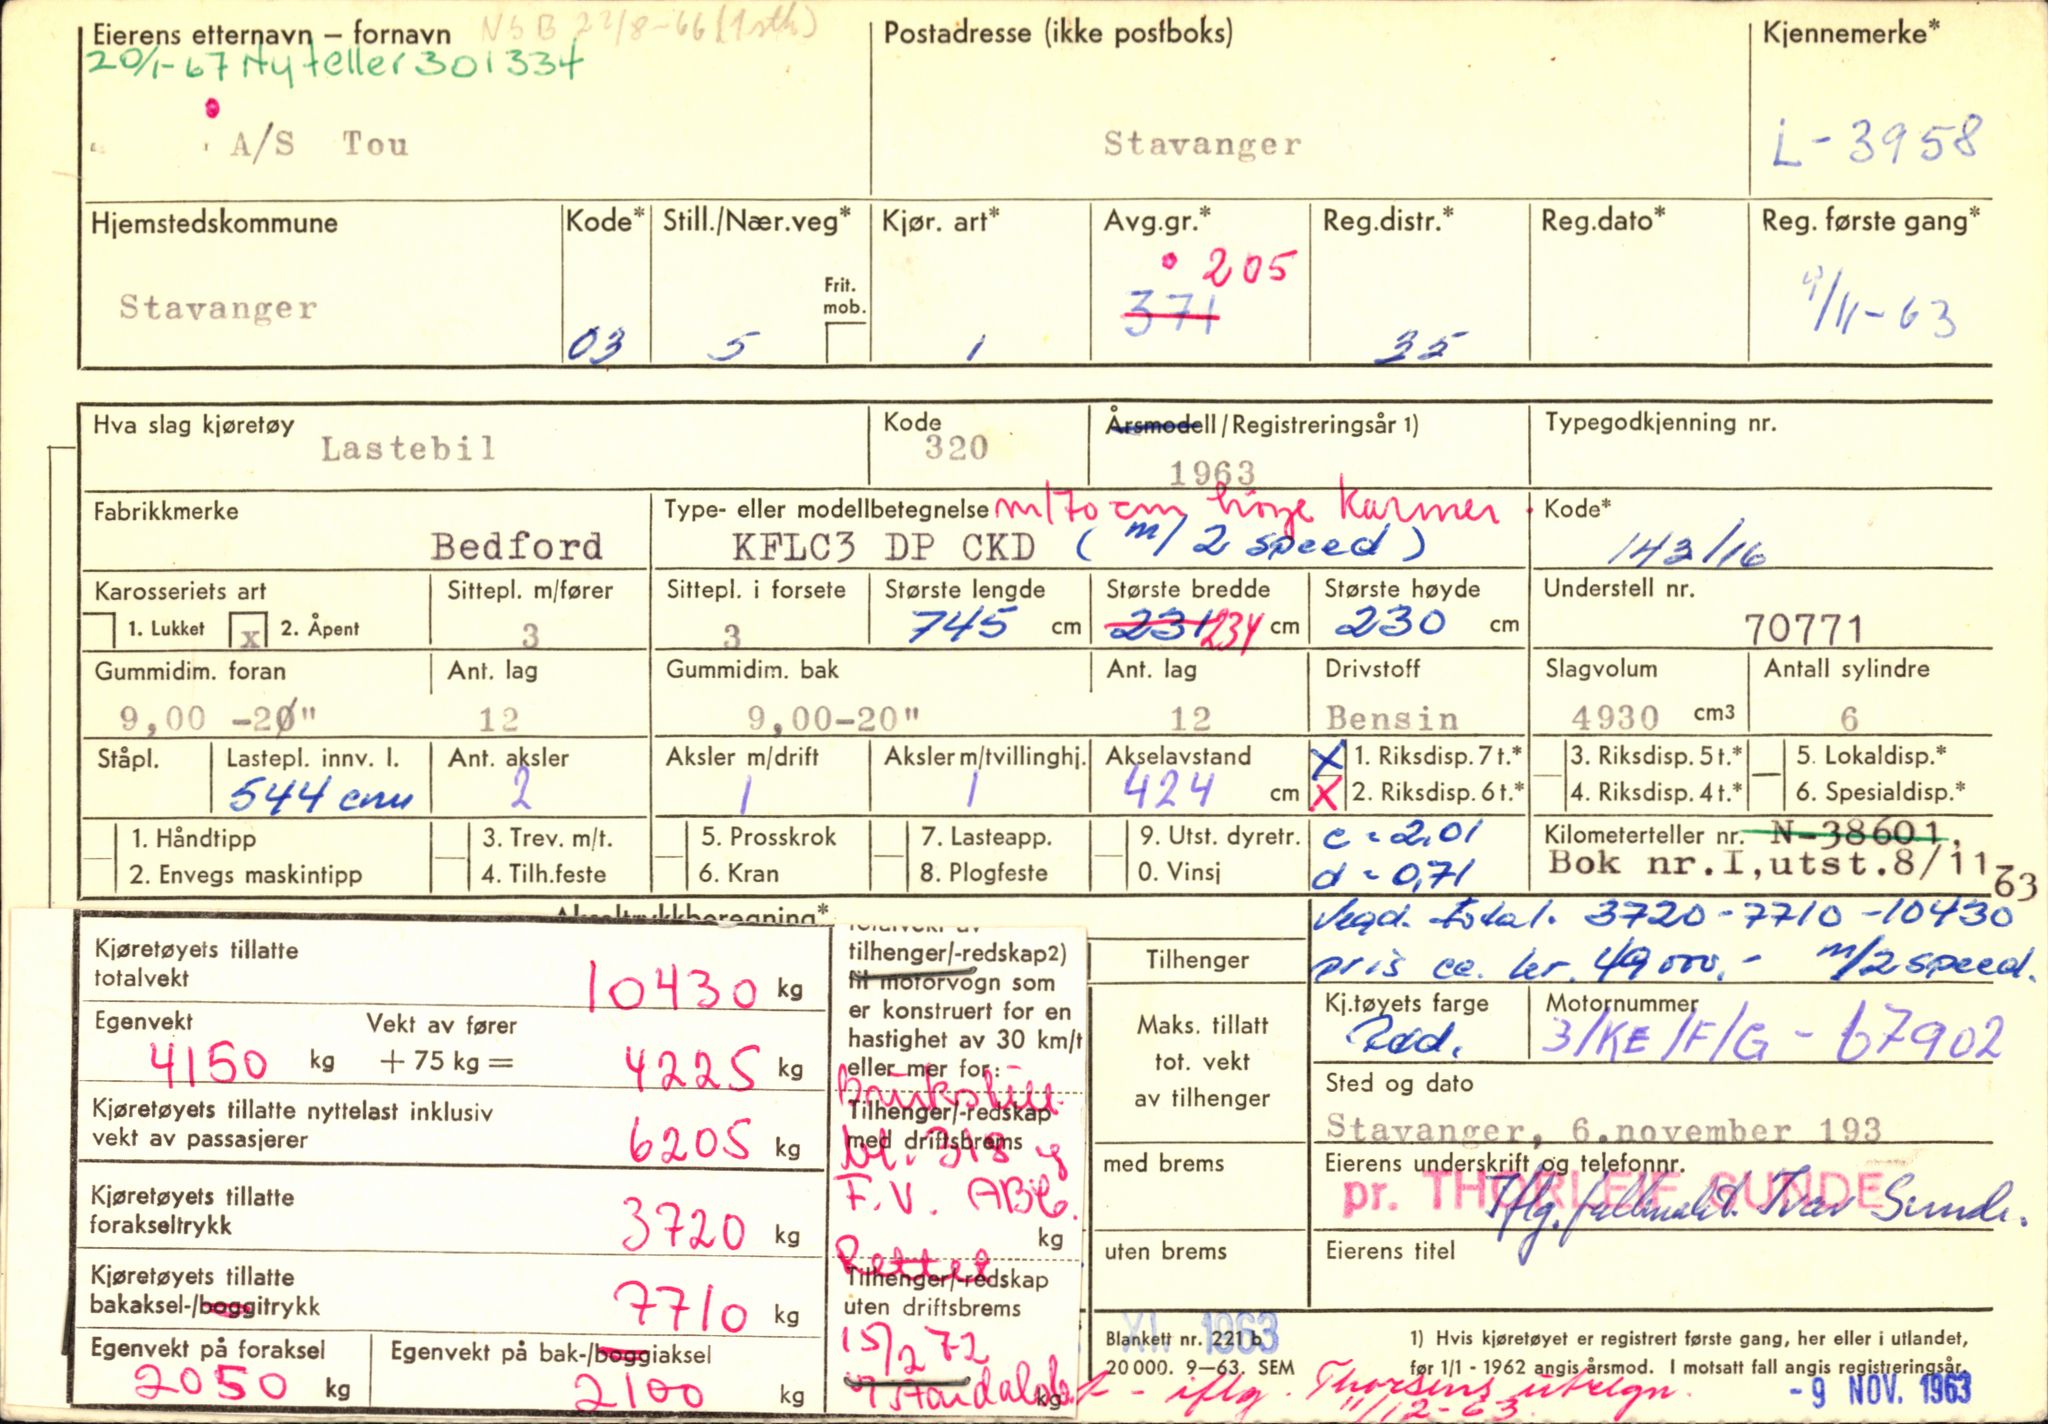 Eierens etternavn – fornavn NSB 22/8-66 (1 stk)
20/1-67 Ny teller 301334
A/S Tou
Postadresse (ikke postboks)
Stavanger
Kjennemerke*
L-3958
Hjemstedskommune
Stavanger
Kode*
03
Still./Nær.veg*
5
Frit.
mob.
Kjør. art*
1
Avg.gr.*
205
371
Reg.distr.*
35
Reg.dato*
Reg. første gang*
9/11-63
Hva slag kjøretøy
Lastebil
Kode
320
Årsmodell/Registreringsår 1)
1963
Typegodkjenning nr.
Fabrikkmerke
Bedford
Type- eller modellbetegnelse m/70 cm høye karmer.
KFLC3 DP CKD (m/2 speed)
Kode*
143/16
Karosseriets art
1. Lukket x 2. Åpent
Sittepl. m/fører
3
Sittepl. i forsete
3
Største lengde
745 cm
Største bredde
231 234 cm
Største høyde
230 cm
Understell nr.
70771
Gummidim. foran
9,00 -20"
Ant. lag
12
Gummidim. bak
9,00-20"
Ant. lag
12
Drivstoff
Bensin
Slagvolum
4930 cm3
Antall sylindre
6
Ståpl.
Lastepl. innv. l.
544 cm
Ant. aksler
2
Aksler m/drift
1
Aksler m/tvillinghj.
1
Akselavstand
424 cm
X 1. Riksdisp. 7 t.*
X 2. Riksdisp. 6 t.*
3. Riksdisp. 5 t.*
4. Riksdisp. 4 t.*
5. Lokaldisp.*
6. Spesialdisp.*
1. Håndtipp
2. Envegs maskintipp
3. Trev. m/t.
4. Tilh.feste
5. Prosskrok
6. Kran
7. Lasteapp.
8. Plogfeste
9. Utst. dyretr.
0. Vinsj
c = 2,01
d = 0,71
Kilometerteller nr. N-38601,
Bok nr.I,utst.8/11 63
Akseltrykkberegning*
Kjøretøyets tillatte
totalvekt
10430 kg
Egenvekt
4150 kg
Vekt av fører
+ 75 kg = 4225 kg
Kjøretøyets tillatte nyttelast inklusiv
vekt av passasjerer
6205 kg
Kjøretøyets tillatte
forakseltrykk
3720 kg
Kjøretøyets tillatte
bakaksel-/boggitrykk
7710 kg
Egenvekt på foraksel
2050 kg
Egenvekt på bak-/boggiaksel
2100 kg
Totalvekt av
tilhenger/-redskap2)
til motorvogn som
er konstruert for en
hastighet av 30 km/t
eller mer for:
Tilhenger/-redskap
med driftsbrems
kl. 318 og
F.V.
kg
Rettet
Tilhenger/-redskap
uten driftsbrems
15/2 72
kg
Tilhenger
Maks. tillatt
tot. vekt
av tilhenger
med brems
uten brems
Vegd. total. 3720-7710-10430
pris ca. kr. 49000,- m/2 speed.
Kj.tøyets farge
Rød.
Motornummer
3/KE/F/G - 67902
Sted og dato
Stavanger, 6.november 193
Eierens underskrift og telefonnr.
pr. THORLEIF SUNDE
Iflg. fullmakt. Ivar Sunde.
Eierens titel
XI. 1963
Blankett nr. 221 b.
20 000. 9–63. SEM
1) Hvis kjøretøyet er registrert første gang, her eller i utlandet,
før 1/1 - 1962 angis årsmod. I motsatt fall angis registreringsår.
- iflg. Thorsens utregn.
11/12-63.
- 9 NOV. 1963